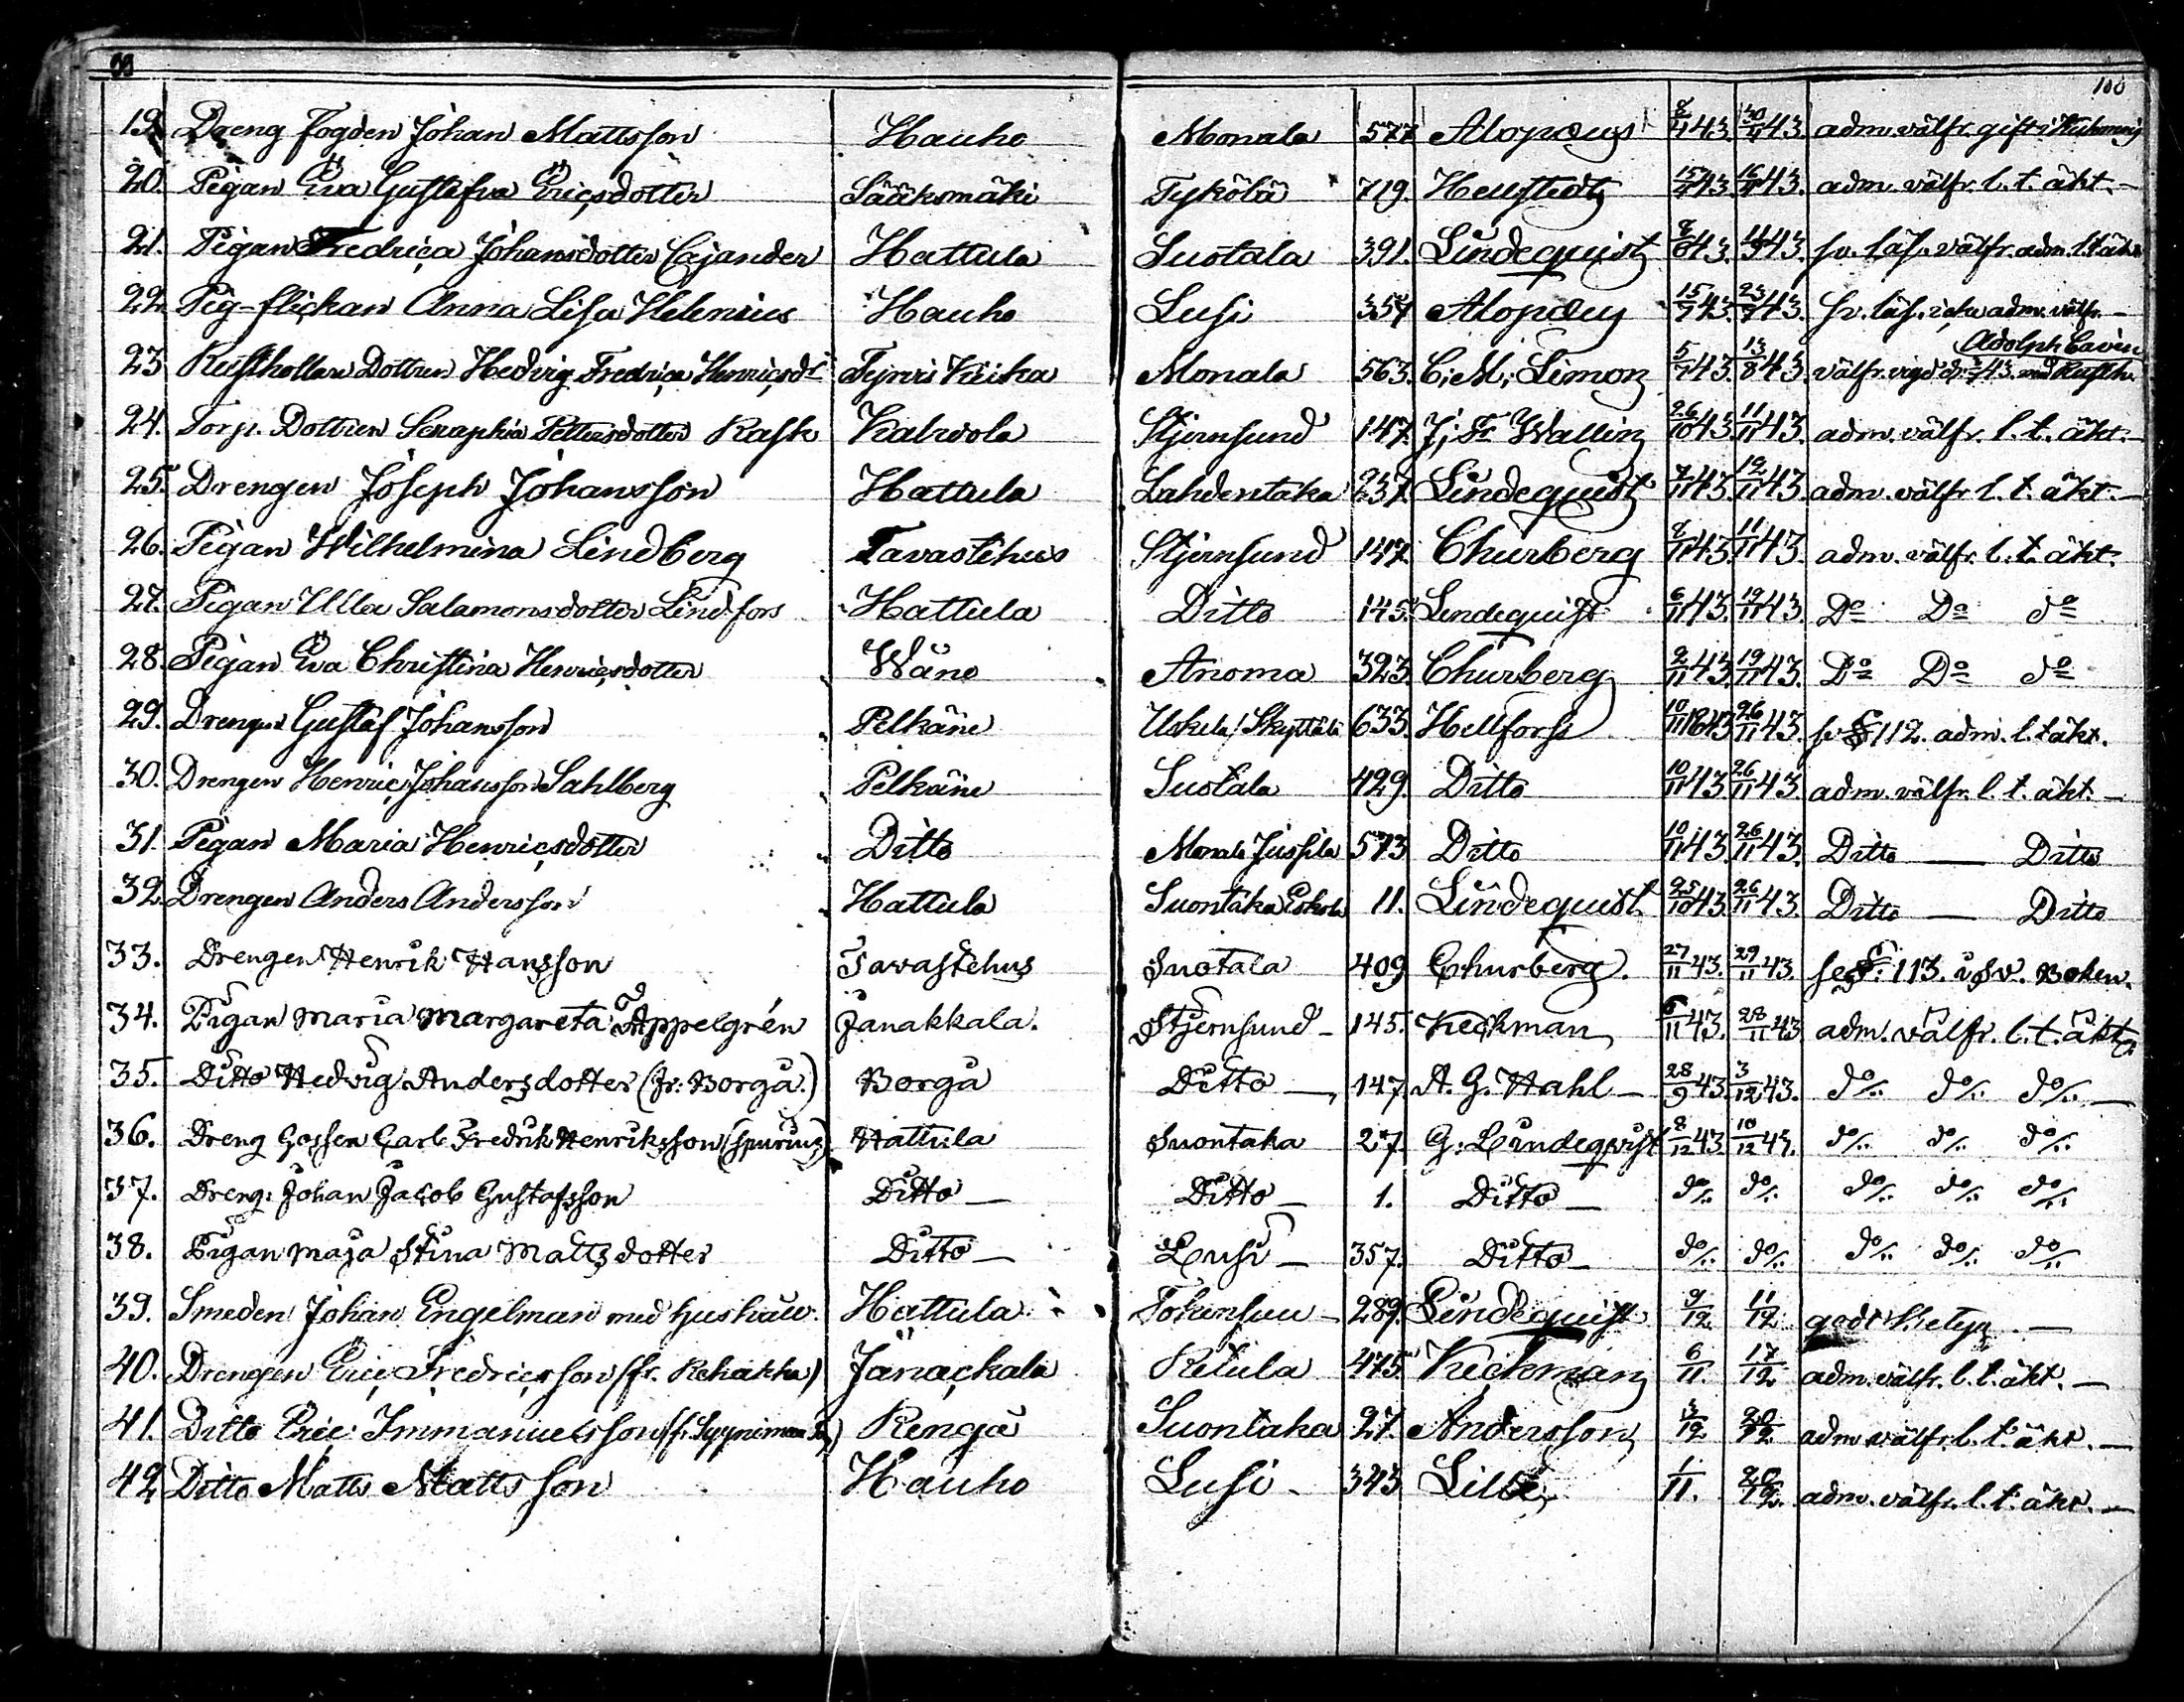 99
100
19. Dreng Fogden Johan Mattsson Hauho Monala 577 Alopæus 8/11 43. 30/11 43. adm. välfr. gift i
20. Pigan Eva Gustafva Ericsdotter Sääksmäki Tykölä 719. Hellstedt 15/11 43. 16/11 43. adm. välfr. l. t. äkt. —
21. Pigan Fredrica Johansdotter Cajander Hattula Suotala 391. Lindequist 43. 43. sv. läs. välfr. adm. l. t. äkt.
22. Pig-flickan Anna Lisa Helenius Hauho Lusi 357 Alopæus 15/7 43. 23/7 43. sv. läs. icke adm. välfr. —
Adolph Cavén
23 Rusthollare Dottren Hedvig Fredrica Henricsdr Tyrvis Kiika Monala 563. C; M; Limon 5/7 43. 13/8 43. välfr. vigd d. 43. med Rusth.
24. Torp. Dottren Seraphia Pettersdotter Rask Kalvola Stjernsund 147. J; Fr Wallin 26/10 43. 11/11 43. adm. välfr. l. t. äkt. —
25. Drengen Joseph Johansson Hattula Lahdentaka 237. Lindequist 7/11 43. 12/11 43. adm. välfr. l. t. äkt. —
26. Pigan Wilhelmina Lindberg Tavastehus Stjernsund 147. Churberg 8/11 43. 11/11 43. adm. välfr. l. t. äkt.
27. Pigan Ulla Salamonsdotter Lindfors Hattula Ditto 145. Lindequist 6/11 43. 19/11 43. Do Do do
28. Pigan Eva Christina Henricsdotter Wåno Anoma 323. Churberg 2/11 43. 19/11 43. Do Do do
29. Drengen Gustaf Johansson Pelkäne Uskela/Skyttälä 633. Hellforss 10/11 1843 26/11 43. sv § 112. adm. l. t. äkt.
30. Drengen Henric Johansson Sahlberg Pelkäne Suotala 429. Ditto 10/11 43. 26/11 43 adm. välfr. l. t. äkt. —
31. Pigan Maria Henricsdotter Ditto Monala Jussila 573 Ditto 10/11 43. 26/11 43. Ditto — Ditto
32. Drengen Anders Andersson Hattula Suontaka Eskola 11. Lindequist 25/10 43. 26/11 43. Ditto — Ditto
33. Drengen Henrik Hansson Tavastehus Suotala 409 Churberg. 27/11 43. 29/11 43. se §: 113. i Sv. Boken.
34. Pigan Maria Margareta Appelgrén Janakkala. Stjernsund — 145. Keckman 6/11 43. 28/11 43 adm. välfr. l. t. äkta
35. Ditto Hedvig Andersdotter (fr: Borgå.) Borgå Ditto — 147. A. G. Hahl — 28/9 43. 3/12 43. do/. do/. do/. —
36. Dreng Gossen Carl Fredrik Henriksson (Spurius) Hattula Suontaka 27. G: Lindeqvist 8/12 43. 10/12 43. do/. do/. do/.
37. Dreng: Johan Jacob Gustafsson Ditto — Ditto — 1. Ditto — do/. do/. do/. do/. do/.
38. Pigan Maja Stina Mattsdotter Ditto — Lusi — 357. Ditto — do/. do/. do/. do/. do/.
39. Smeden Johan Engelman med hushåll. Hattula Tohansuu — 289. Lindequist 9/12 11/12 godt . —
40. Drengen Eric Fredricsson (fr. Rehakka) Janackala Retula 475 Keckman 6/11. 17/12 adm. välfr. l. t. äkt. —
41. Ditto Eric Immanuelsson Rengå Suontaka 27. Andersson 3/12 20/12 adm. välfr. l. t. äkt. —
42. Ditto Matts Mattsson Hauho Lusi — 343 Lille 1/11. adm. välfr. l. t. äkt. —